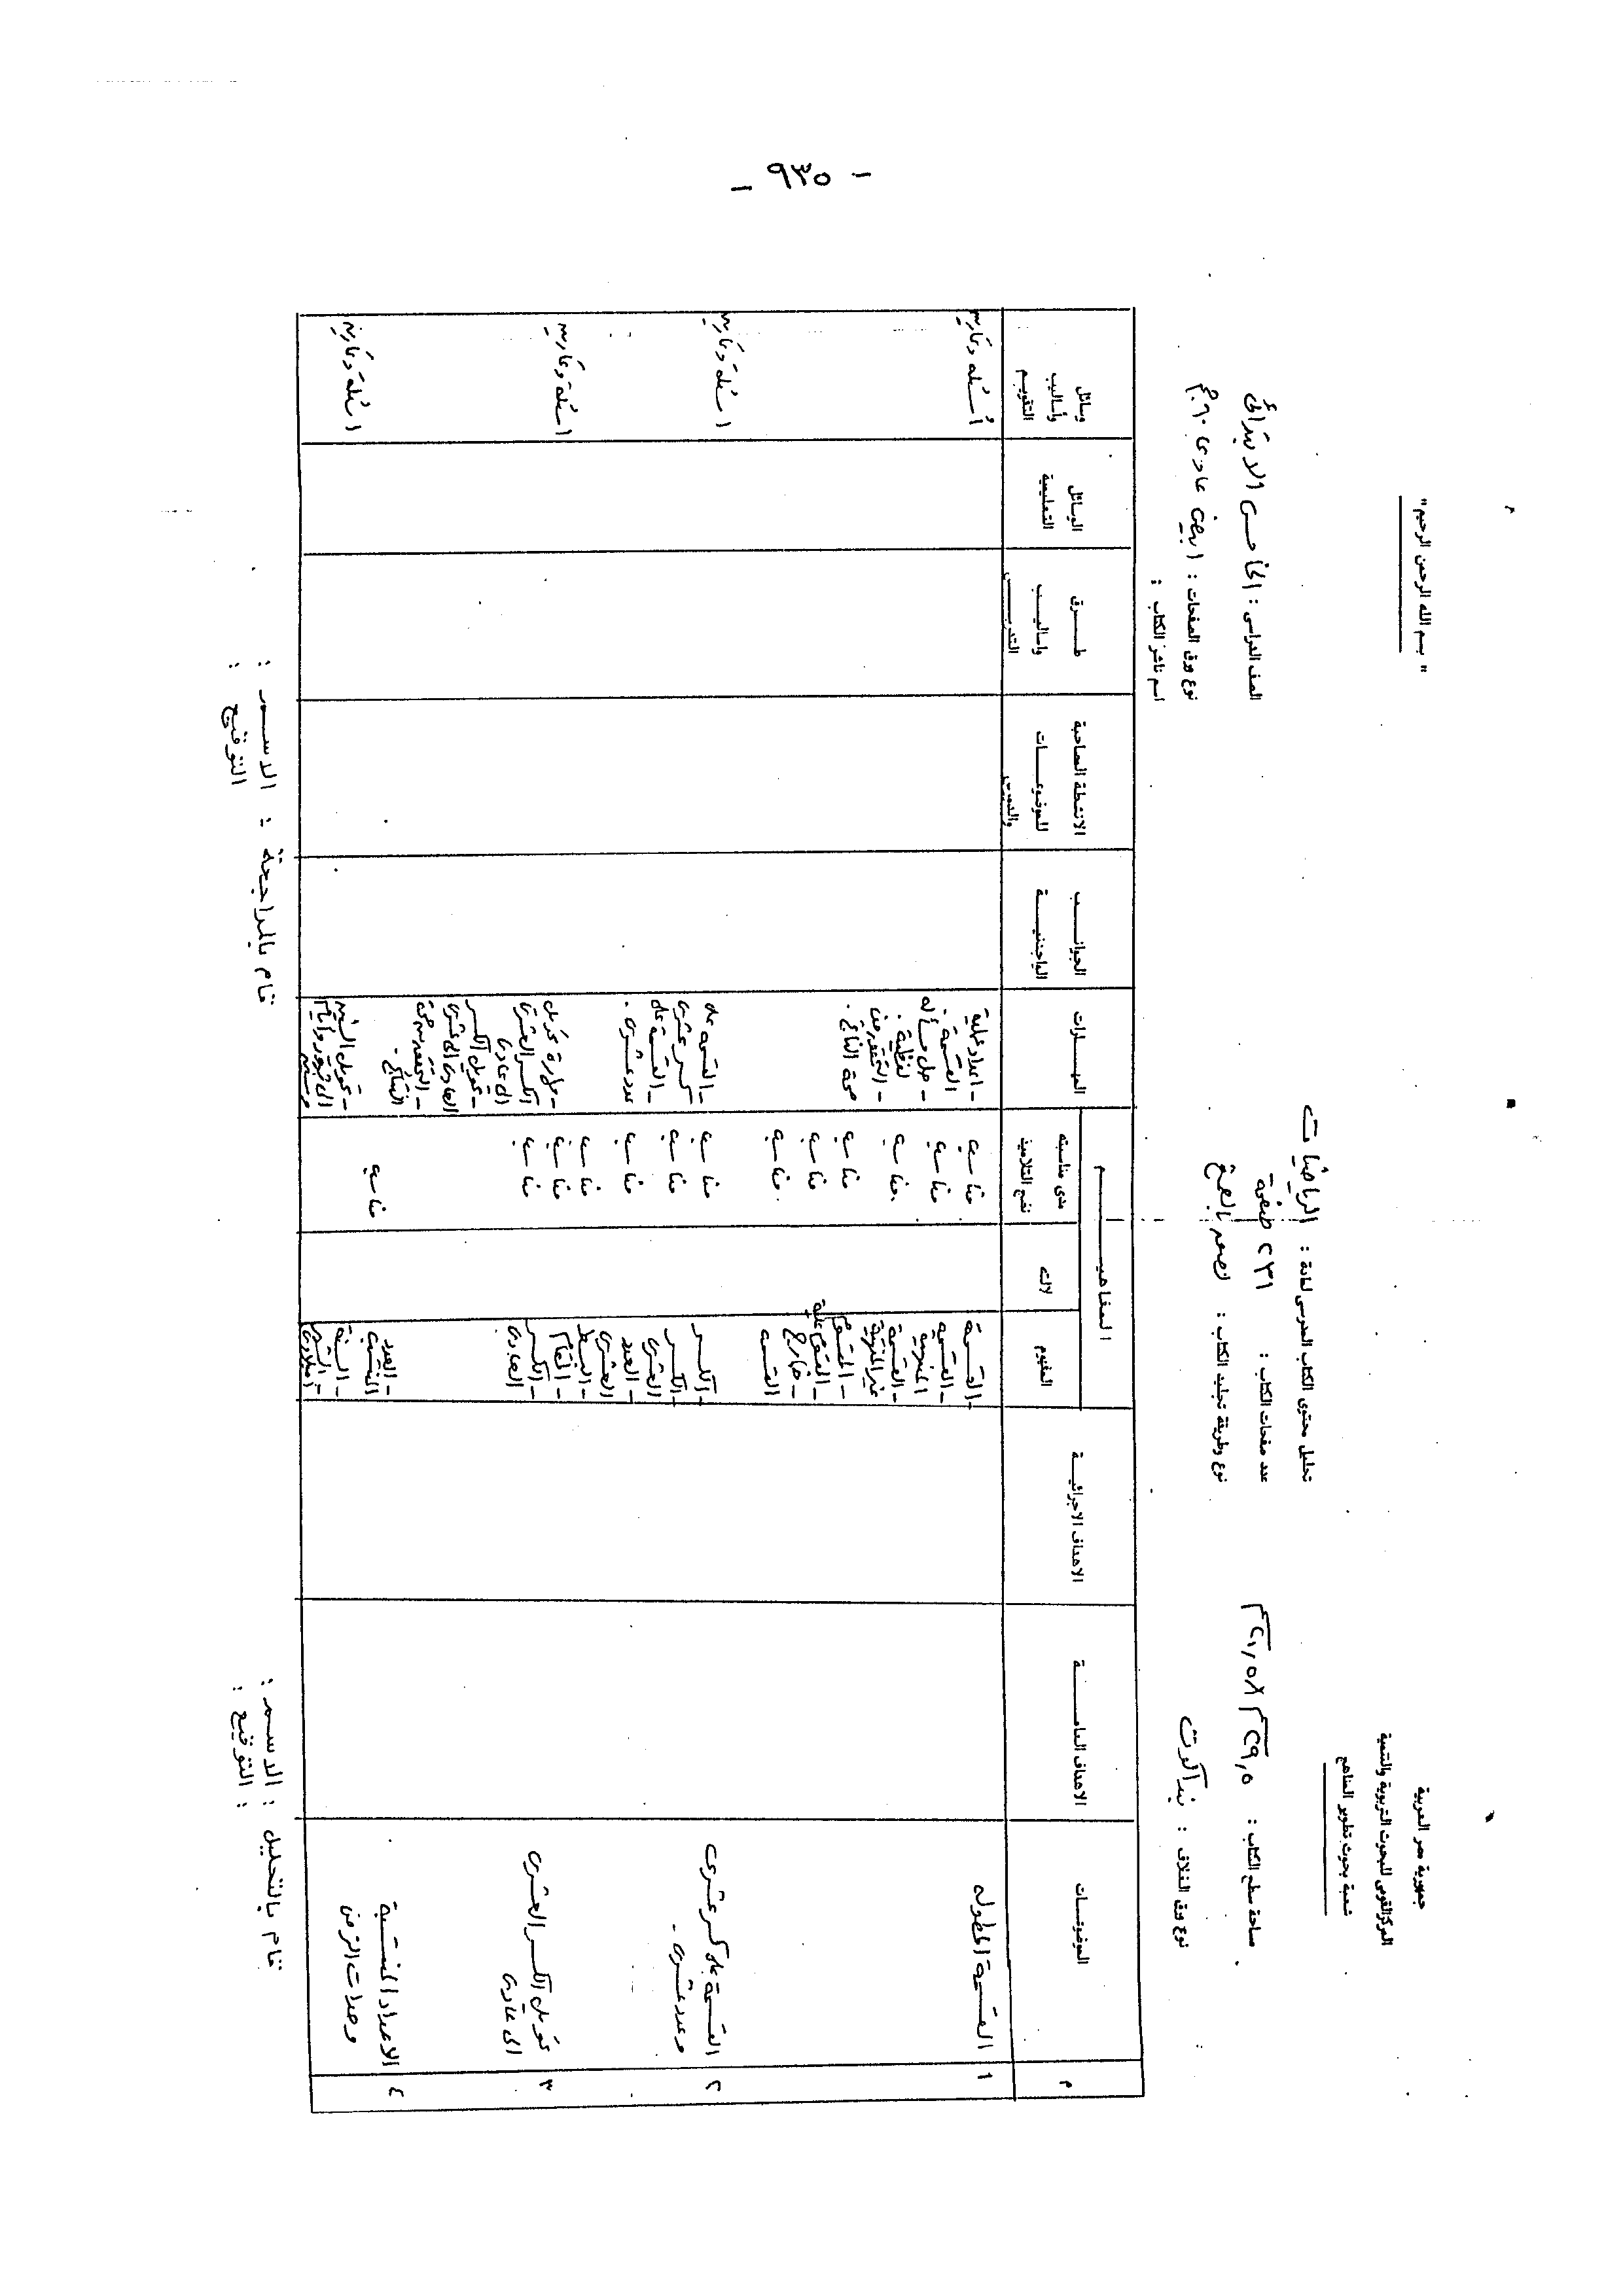 - ٩٣٥ -
" بسم الله الرحمن الرحيم "
جمهورية مصر العربية
المركز القومى للبحوث التربوية والتنمية
شعبة بحوث تطوير المناهج
تحليل محتوى الكتاب المدرسى لمادة : الرياضيات
الصف الدراسى : الخامس الابتدائى
عدد صفحات الكتاب : ٢٣١ صفحة
مساحة سطح الكتاب :
نوع ورق الصفحات : ابيض عادى ٦٠ جم
نوع وطريقة تجليد الكتاب :
نوع ورق الغلاف :
اسم ناشر الكتاب :
م
الموضوعات
الاهداف العامــة
الاهداف الاجرائيـة
المفاهيـــم
المفهوم
مدى مناسبته نضج التلاميذ
المهـارات
الجوانـب الواجدنيـة
الانشطة المصاحبة للموضوعـات والتدريب
طـرق واساليـب التدريـس
الوسائل التعليمية
وسائل وأساليب التقويم
١
القسمة المطوله
- القسمة
- القسمة المنتهية
- القسمة غير المنتهية
- المقسوم
- المقسوم عليه
- خارج القسمه
مناسب
مناسب
مناسب
مناسب
مناسب
مناسب
- اعداد عملية القسمة .
- حل مسأله لفظية .
- التحقق من صحة الناتج .
أسئله وتمارين
٢
القسمة على كسر عشرى
وعدد عشرى .
- الكسر
- الكسر العشرى
- العدد العشرى
مناسب
مناسب
مناسب
- القسمه على كسر عشرى
- القسمة على عدد عشرى .
اسئلة وتمارين
٣
تحويل الكسر العشرى
الى عادى
- البسط
- المقام
- الكسر العادى
مناسب
مناسب
مناسب
- مهارة تحويل الكسر العشرى الى عادى
- تحويل الكسر العادى الى عشرى
- التحقق من صحة الناتج .
اسئلة وتمارين
٤
الاعداد المنتسبة
وحدات الزمن
- العدد المنتسب
- السنة
- الشهر
مناسب
- تحويل السنين الى شهور وأيام
اسئلة وتمارين
قام بالتحليل : الاسم :
التوقيع :
قام بالمراجعة : الاسم :
التوقيع :